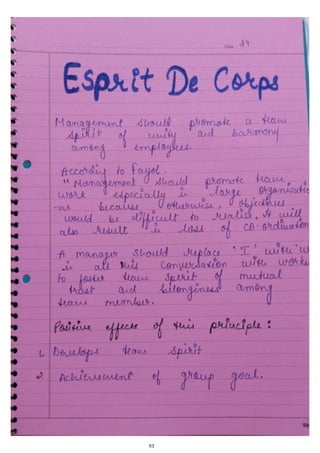 Date 34
Esprit De Corps
Management should promote a team
spirit of unity and harmony
among employees.
According to Fayol.
"Management should promote team
work especially in large organisatio
-ns because otherwise, objectives
would be difficult to realise, It will
also result in loss of co-ordination
A manager should replace 'I' with 'w
in all his conversation with worke
to foster team spirit of mutual
trust and belonginess among
team member.
Positive effects of this principle :
1. Develops team spirit
2. Achievement of group goal.
53